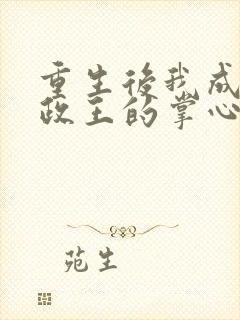 重生後我成
政王的掌心
苑生